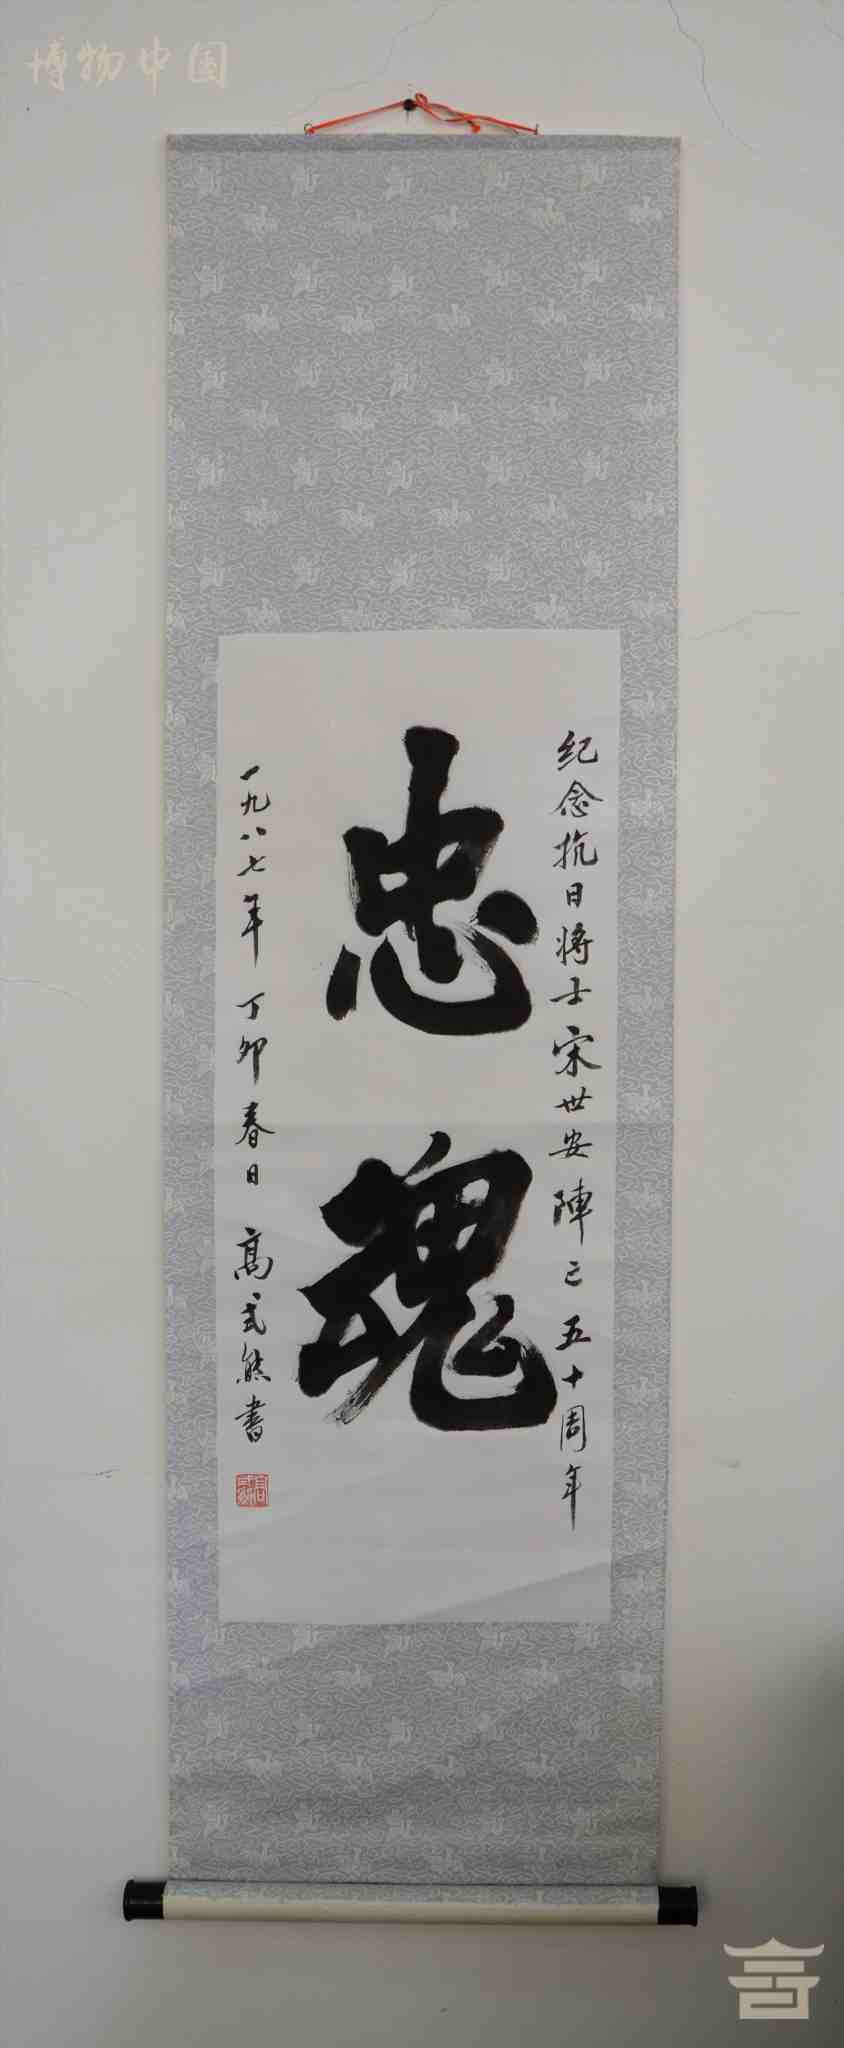 博物中国
纪念抗日将士宋世安陣亡五十周年
忠魂
一九八七年丁卯春日高式熊書